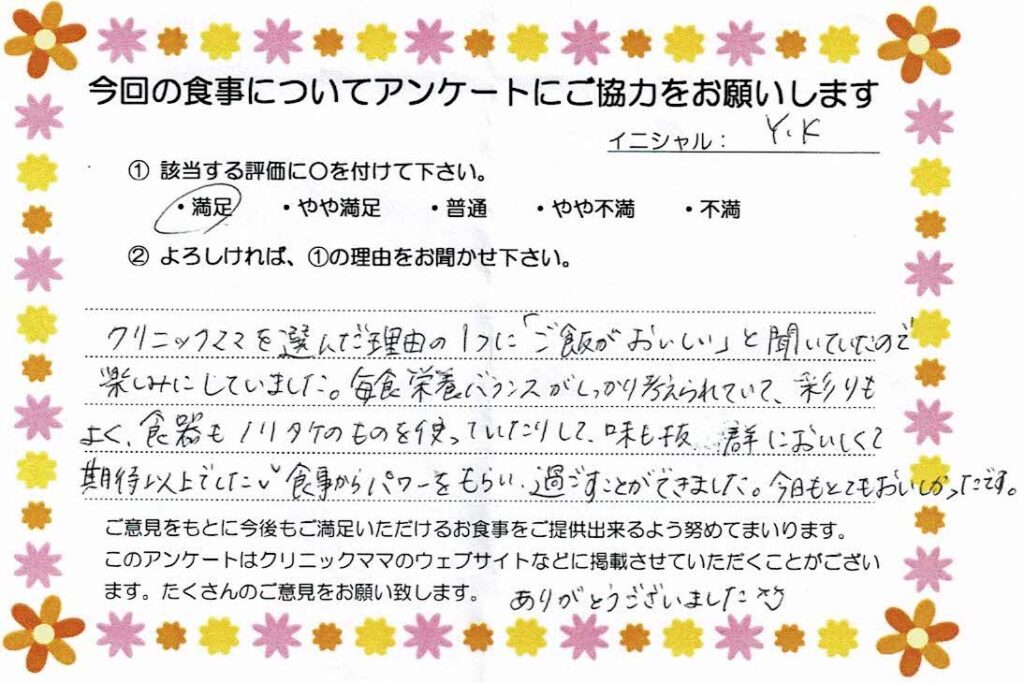 今回の食事についてアンケートにご協力をお願いします
イニシャル： Y.K
① 該当する評価に〇を付けて下さい。
・満足 ・やや満足 ・普通 ・やや不満 ・不満
② よろしければ、①の理由をお聞かせ下さい。
クリニックママを選んだ理由の1つに「ご飯がおいしい」と聞いていたので
楽しみにしていました。毎食栄養バランスがしっかり考えられていて、彩りも
よく、食器もノリタケのものを使っていたりして、味も抜群においしくて
期待以上でした 食事からパワーをもらい、過ごすことができました。今日もとてもおいしかったです。
ご意見をもとに今後もご満足いただけるお食事をご提供出来るよう努めてまいります。
このアンケートはクリニックママのウェブサイトなどに掲載させていただくことがござい
ます。たくさんのご意見をお願い致します。
ありがとうございました